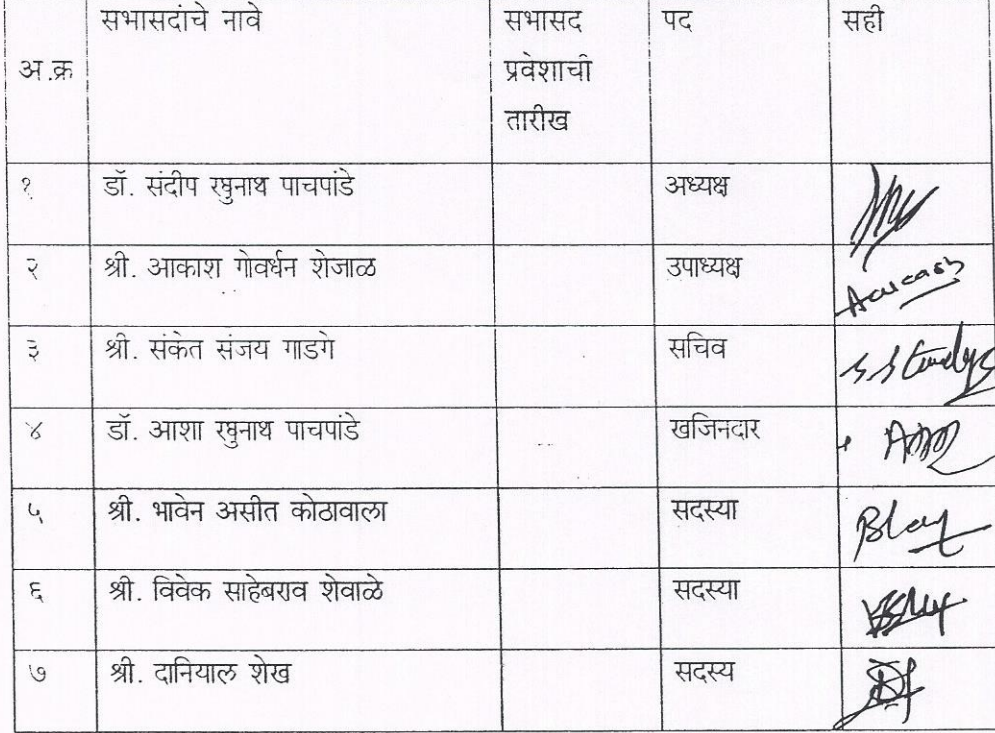 सभासदांचे नावे सभासद पद सही
अ.क्र प्रवेशाची
तारीख
१ डॉ. संदीप रघुनाथ पाचपांडे अध्यक्ष
२ श्री. आकाश गोवर्धन शेजाळ उपाध्यक्ष
३ श्री. संकेत संजय गाडगे सचिव
४ डॉ. आशा रघुनाथ पाचपांडे खजिनदार
५ श्री. भावेन असीत कोठावाला सदस्या
६ श्री. विवेक साहेबराव शेवाळे सदस्या
७ श्री. दानियाल शेख सदस्य